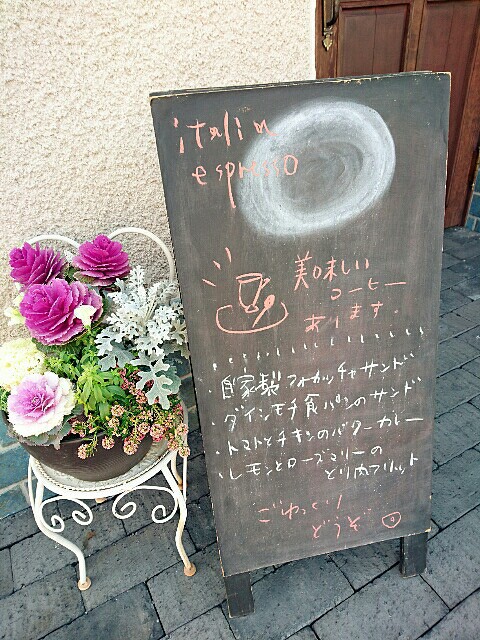 italian
espresso
美味しい
コーヒー
あります.
・自家製フォカッチャサンド
・ダイシモチ食パンのサンド
・トマトとチキンのバターカレー
・レモンとローズマリーの
とり肉フリット
ごゆっくり
どうぞ